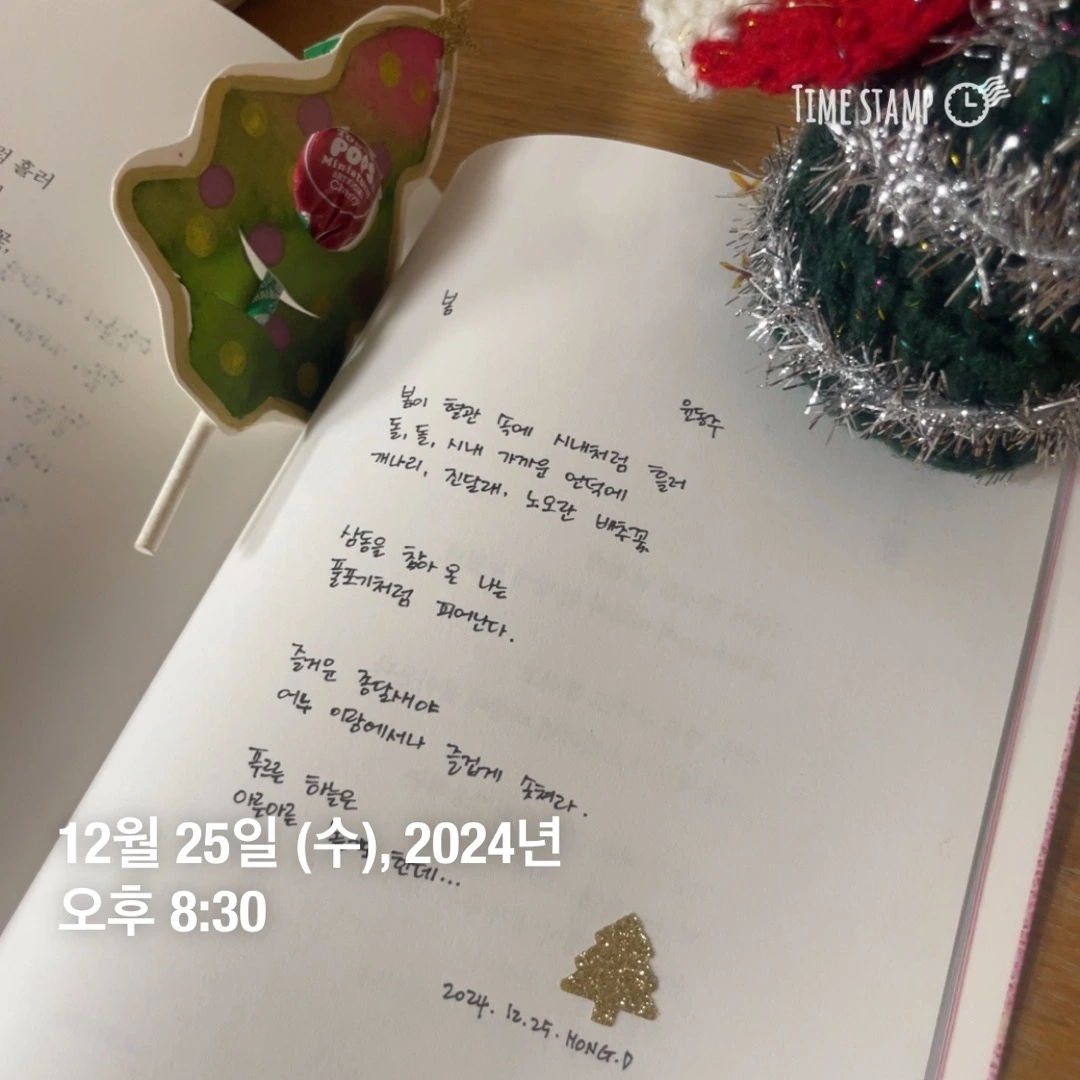 TIME STAMP
POPS
Miniatures
Cherry
흘러
봄
윤동주
봄이 혈관 속에 시내처럼 흘러
돌, 돌, 시내 가까운 언덕에
개나리, 진달래, 노오란 배추꽃
삼동을 참아 온 나는
풀포기처럼 피어난다.
즐거운 종달새야
어느 이랑에서나 즐겁게 솟쳐라.
푸르른 하늘은
아른아른 한데...
12월 25일 (수), 2024년
오후 8:30
2024. 12. 25. HONG.D